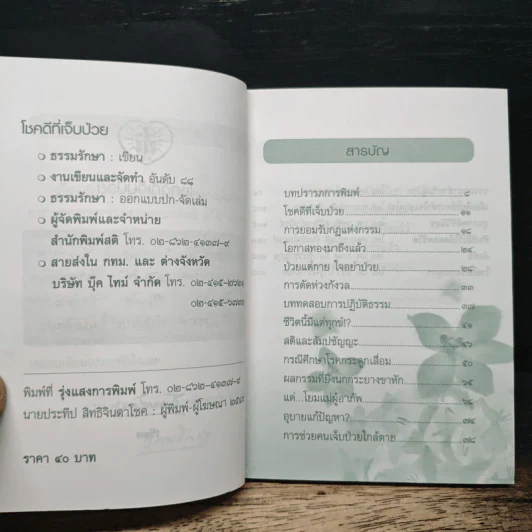 โชคดีที่เจ็บป่วย
ธรรมรักษา : เขียน
งานเขียนและจัดทำ อันดับ ๘๘
ธรรมรักษา : ออกแบบปก-จัดเล่ม
ผู้จัดพิมพ์และจำหน่าย
สำนักพิมพ์สติ โทร. ๐๒-๘๖๒-๔๑๓๗-๙
สายส่งใน กทม. และ ต่างจังหวัด
บริษัท บุ๊ค ไทม์ จำกัด โทร.
พิมพ์ที่ รุ่งแสงการพิมพ์ โทร. ๐๒-๘๖๒-๔๑๓๗-๙
นายประทีป สิทธิจินดาโชค : ผู้พิมพ์-ผู้โฆษณา
ราคา ๔๐ บาท
สารบัญ
บทปรารภการพิมพ์ ๘
โชคดีที่เจ็บป่วย ๑๑
การยอมรับกฎแห่งกรรม ๑๘
โอกาสทองมาถึงแล้ว ๒๔
ป่วยแต่กาย ใจอย่าป่วย ๒๘
การตัดห่วงกังวล ๓๓
บททดสอบการปฏิบัติธรรม ๓๗
ชีวิตนี้มีแต่ทุกข์!?
สติและสัมปชัญญะ
กรณีศึกษาโรคกระดูกเสื่อม ๕๐
ผลกรรมที่ยิงนกกระยางขาหัก ๖๕
แด่...โยมแม่ผู้อาภัพ
อุบายแก้ปัญหา?
การช่วยคนเจ็บป่วยใกล้ตาย ๗๘